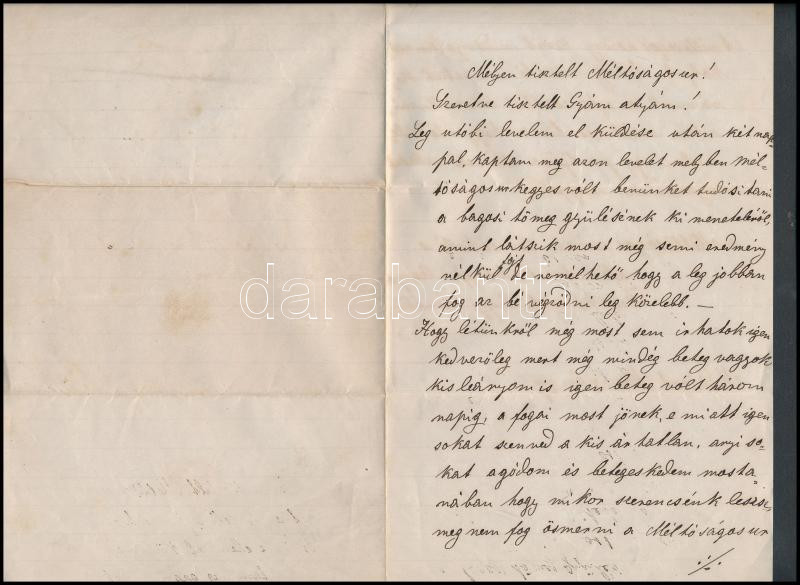 Mélyen tisztelt Méltóságos ur!
Szeretve tisztelt Gyám atyám!
Leg utóbi levelem el küldése után két nap-
pal, kaptam meg azon levelet melyben Mél-
tóságos ur kegyes vólt benünket tudósitani
a bagosi tömeg gyülésének ki meneteléről,
amint látszik most még semi eredmény
nélkül
de remélhető hogy a leg jobban
fog az bé végződni leg közelebb. —
Hogy létünkről még most sem irhatok igen
kedvezőleg mert még mindég beteg vagyok
kis leányom is igen beteg vólt három
napig, a fogai most jönek, e miatt igen
sokat szenved a kis ártatlan, anyi so-
kat agódom és betegeskedem mosta-
nában hogy mikor szerencsénk lessz,
meg nem fog ösmérni a Méltóságos ur
./.
darabanth